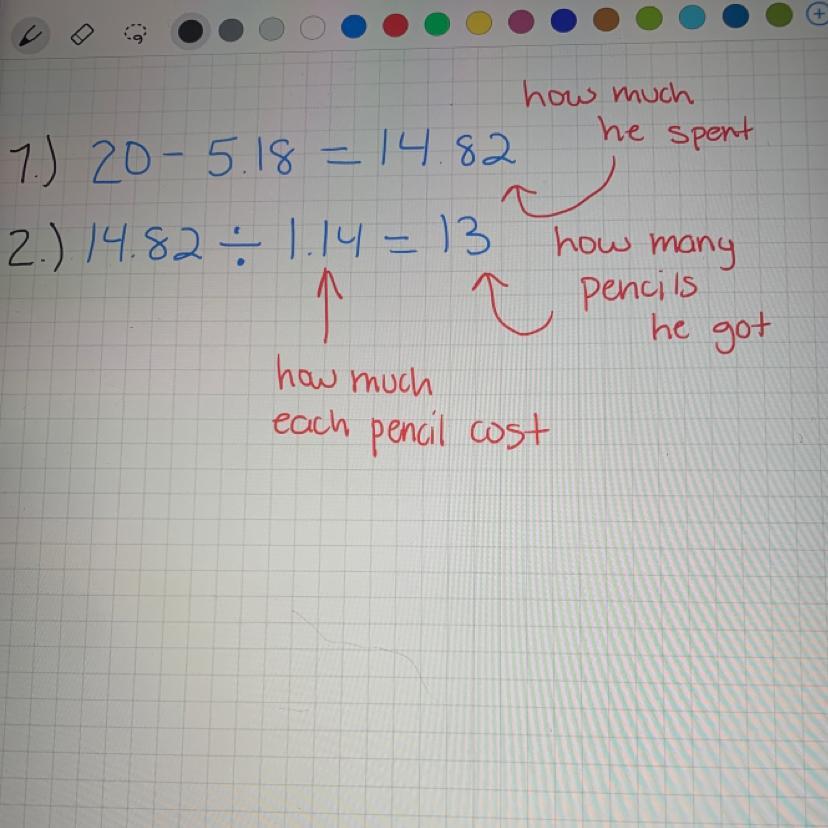 how much
he spent
1.) 20 - 5.18 = 14.82
2.) 14.82 ÷ 1.14 = 13
how many
pencils
he got
how much
each pencil cost